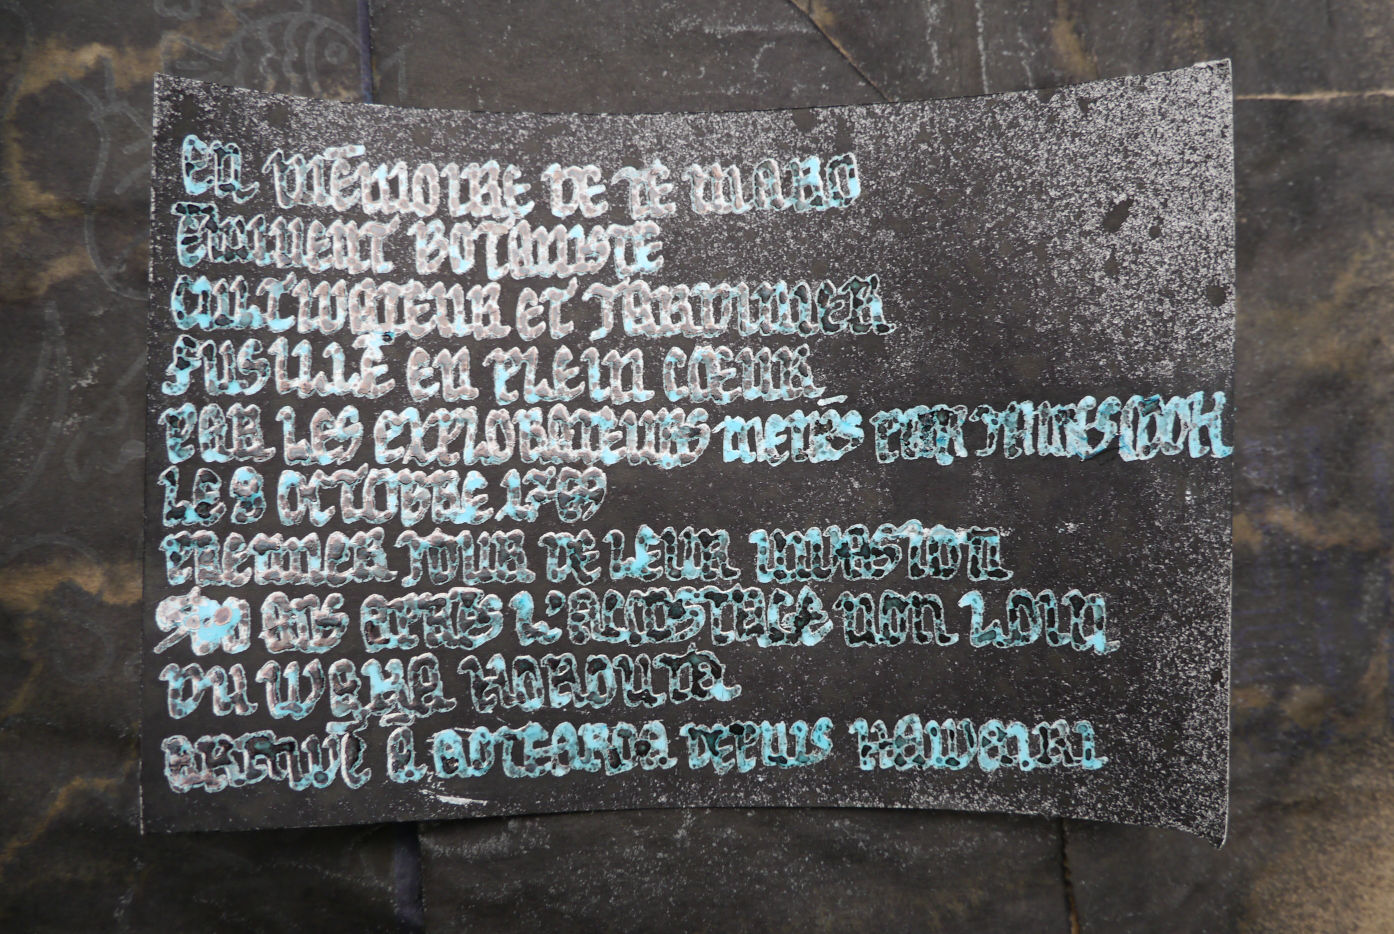 EN MÉMOIRE DE TE MARO
ÉMINENT BOTANISTE
CULTIVATEUR ET JARDINIER
FUSILLÉ EN PLEIN CŒUR
PAR LES EXPLORATEURS MENÉS PAR JAMES COOK
LE 9 OCTOBRE 1769
PREMIER JOUR DE LEUR INVASION
ANS APRÈS L'ACCOSTAGE NON LOIN
DU WAKA HOROUTA
ARRIVÉ À AOTEAROA DEPUIS HAWAIKI